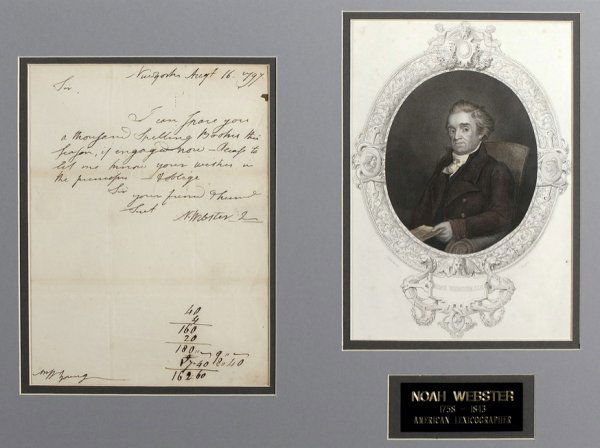 Newyork Augt 16. 1797
Sir.
I can spare you
a thousand Spelling Books this
season, if engaged now – Please to
let me know your wishes in
the premises & oblige
Sir your friend & hum
Servt
N Webster
40
4
160
20
180
17.40
162.60
Mr W Young
NOAH WEBSTER
1758 - 1843
AMERICAN LEXICOGRAPHER